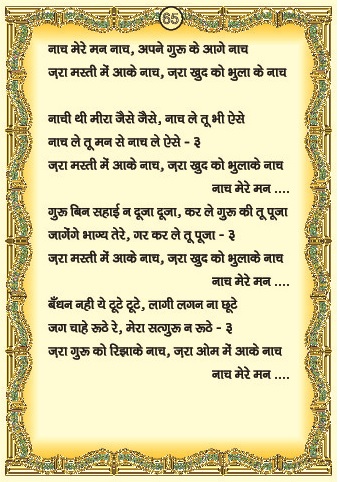 65
नाच मेरे मन नाच, अपने गुरू के आगे नाच
ज़रा मस्ती में आके नाच, ज़रा खुद को भुला के नाच
नाची थी मीरा जैसे जैसे, नाच ले तू भी ऐसे
नाच ले तू मन से नाच ले ऐसे - ३
ज़रा मस्ती में आके नाच, ज़रा खुद को भुलाके नाच
नाच मेरे मन ....
गुरू बिन सहाई न दूजा दूजा, कर ले गुरू की तू पूजा
जागेंगे भाग्य तेरे, गर कर ले तू पूजा - ३
ज़रा मस्ती में आके नाच, ज़रा खुद को भुलाके नाच
नाच मेरे मन ....
बँधन नही ये टूटे टूटे, लागी लगन ना छूटे
जग चाहे रूठे रे, मेरा सत्गुरू न रूठे - ३
ज़रा गुरू को रिझाके नाच, ज़रा ओम में आके नाच
नाच मेरे मन ....